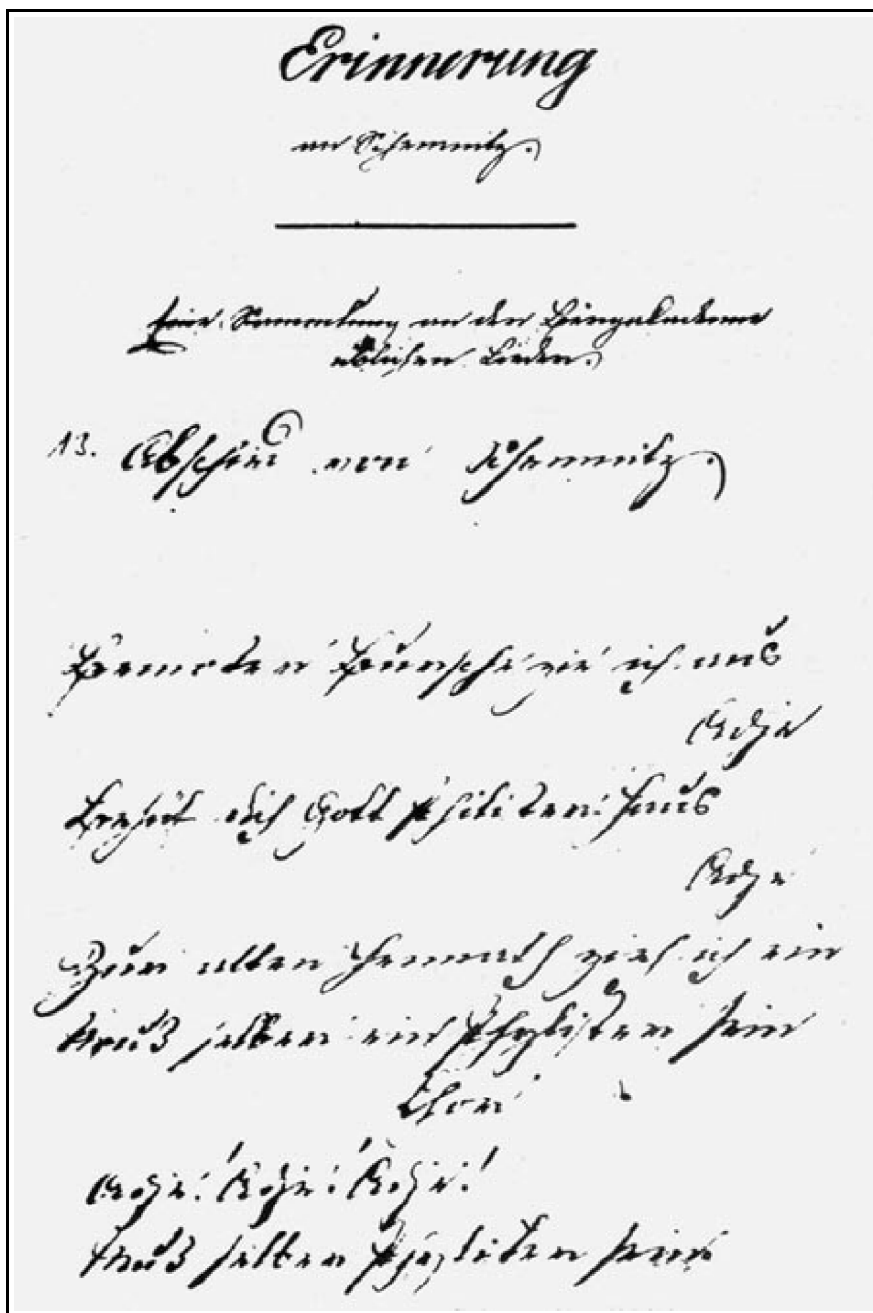 Erinnerung
an Schemnitz.
Eine Sammlung an der Bergakademie
üblichen Lieder.
13. Abschied von Schemnitz.
Bemoster Bursche zie ich aus
Adje
Behüt dich Gott Philister Haus
Adje
Zur alten Heimath zieh ich ein
Muß selber ein Phylister sein
Chor
Adje! Adje! Adje!
Muß selber Phylister sein